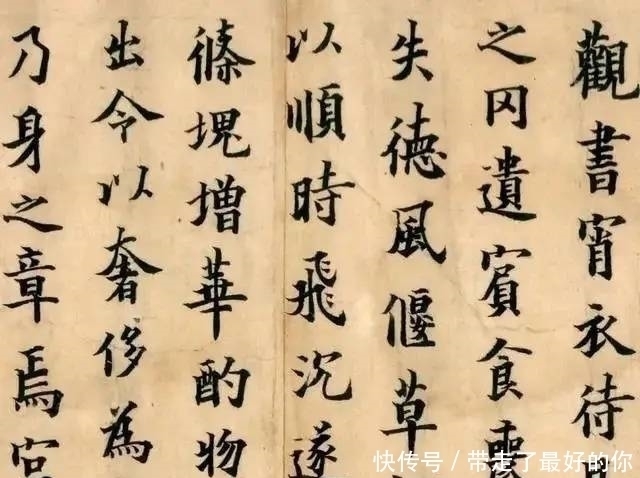 觀書宵衣待
之罔遺賓食
失德風偃草
以順時飛沉遂
條塊增華酌物
出令以奢侈為
乃身之章焉
快传号/带走了最好的你